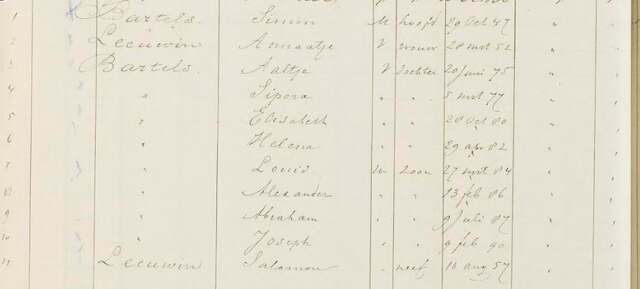 1 Bartels Simon M hoofd 29 Oct 47
2 Leeuwin Annaatje V vrouw 28 mrt 52
3 Bartels. Aaltje V dochter 20 juni 75
4 " Sipora " " 5 mrt 77
5 " Elisabeth " " 28 Oct 80
6 " Helena " " 29 apr 82
7 " Louis m Zoon 27 mrt 84
8 " Alexander " " 13 feb 86
9 " Abraham " " 9 Juli 87
10 " Joseph " " 9 feb 90
11 Leeuwin Salomon " neef 16 aug 57